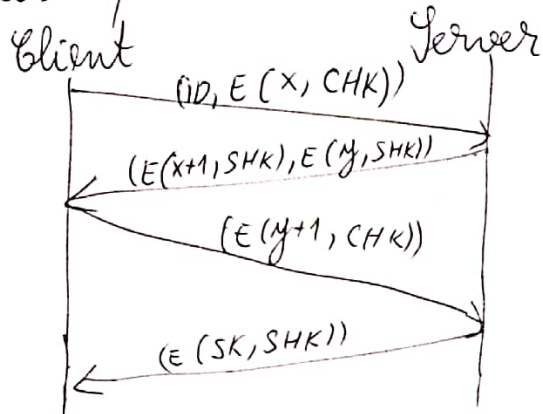 Client
Server
(ID, E(X, CHK))
(E(X+1, SHK), E(y, SHK))
(E(y+1, CHK))
(E(SK, SHK))